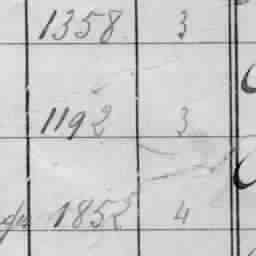 1358 3
1192 3
1852 4